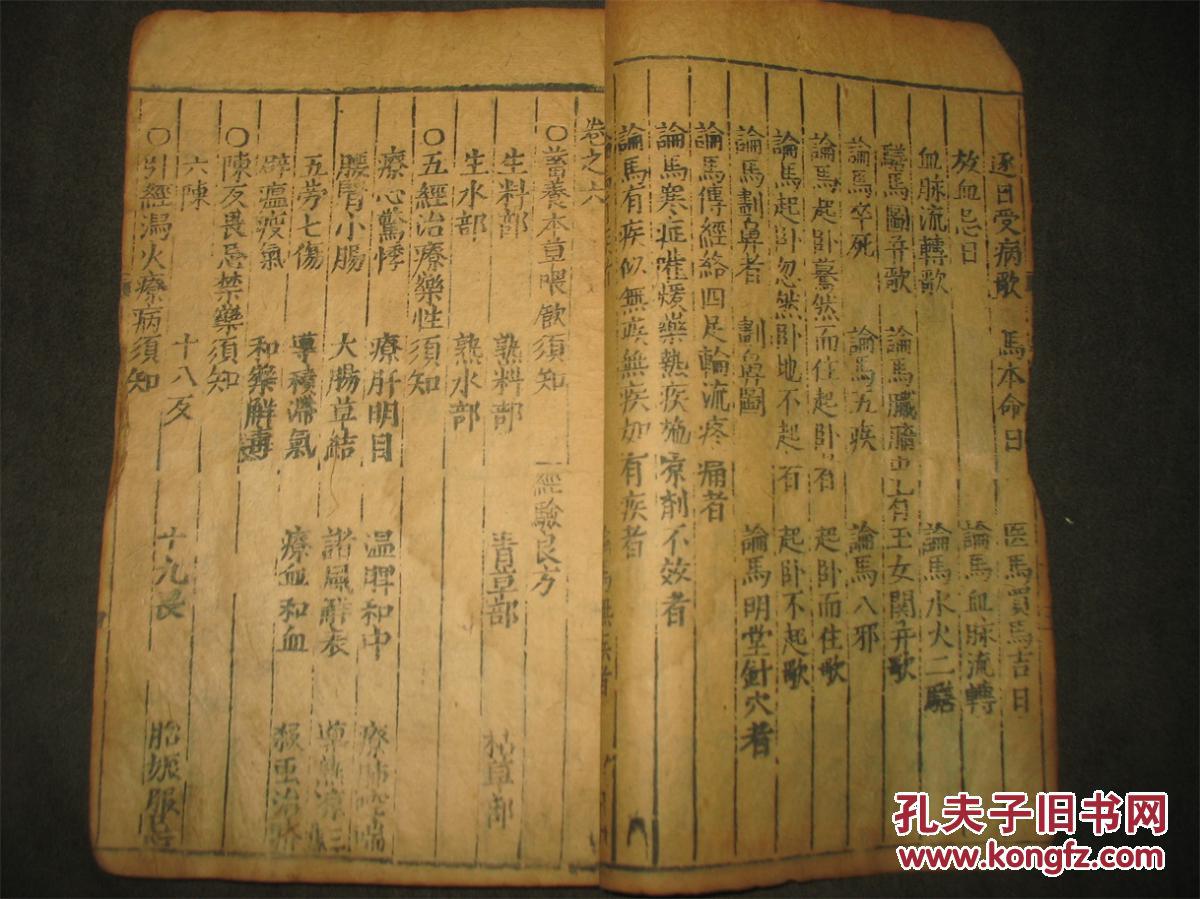 逐日受病歌 馬本命日 医馬買馬吉日
放血忌日 論馬血脉流轉
血脉流轉歌 論馬水火二騸
騸馬圖并歌 論馬臟 有王女関并歌
論馬卒死 論馬五疾 論馬八邪
論馬起卧驀然而住起卧者 起卧而住歌
論馬起卧忽然卧地不起者 起卧不起歌
論馬劃鼻者 劃鼻圖 論馬明堂針穴者
論馬傳經絡四足輪流疼痛者
論馬寒症唯煖藥熱疾施凉剤不效者
論馬有疾似無疾無疾如有疾者
卷之六
〇蓄養本草喂飲須知 一經驗良方
生料部 熟料部 青草部 枯草部
生水部 熟水部
〇五經治療藥性須知
療心驚悸 療肝明目 温脾和中 療肺 喘
腰腎小腸 大腸草結 諸風解表
五勞七傷 導積滯氣 療血和血
辟瘟疫氣 和藥解毒
〇陳反畏忌禁藥須知
六陳 十八反 十九畏 胎娠服
〇引經瀉火療病須知
孔夫子旧书网
www.kongfz.com